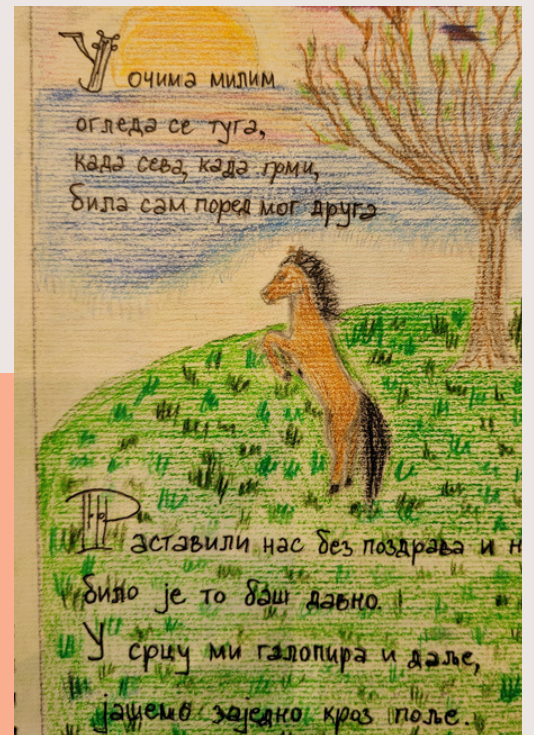 У очима милим
огледа се туга,
када сева, када грми,
била сам поред мог друга
Раставили нас без поздрава и
било је то баш давно.
У срцу ми галопира и даље,
јашемо заједно кроз поље.